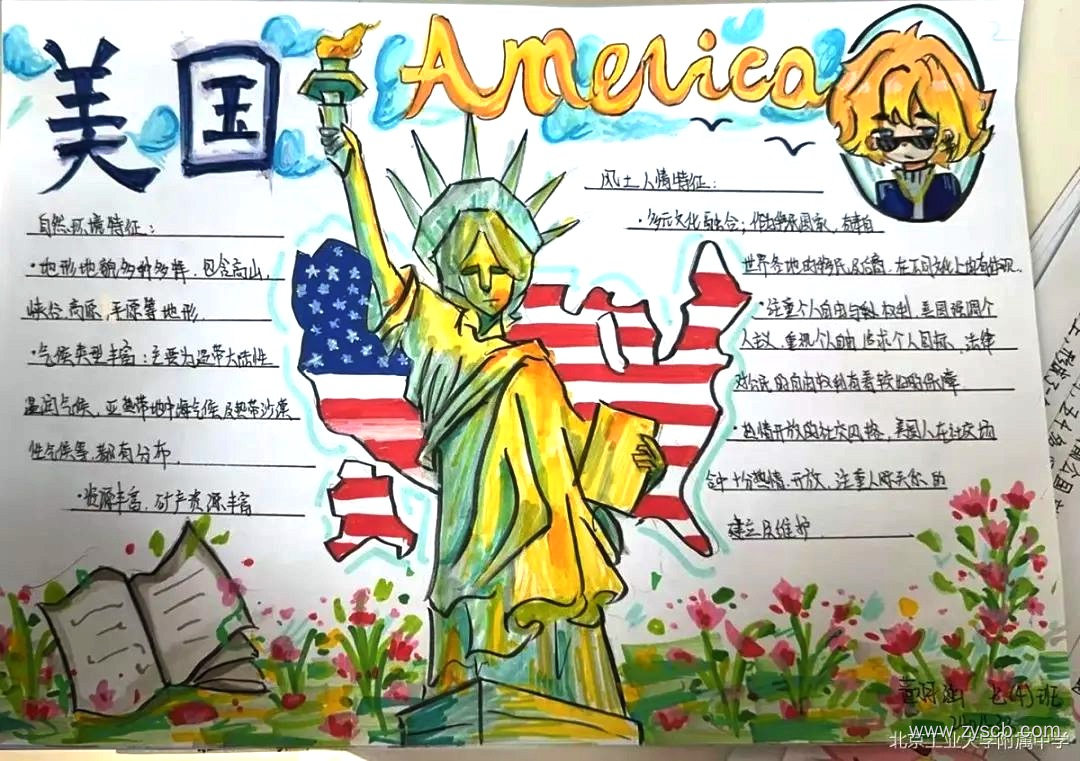 美国
America
自然环境特征：
·地形地貌多种多样，包含高山、
峡谷、高原、平原等地形.
·气候类型丰富：主要为温带大陆性
湿润气候、亚热带地中海气候及热带沙漠
性气候等都有分布.
·资源丰富，矿产资源丰富
风土人情特征：
·多元文化融合；作为移民国家，有来自
世界各地的移民及后裔，在不同文化上均有体现.
·注重个人自由与权利，美国强调个
人主义，重视个人自由，追求个人目标，法律
对公民的自由权利有着较好的保障
·热情开放的社交风格，美国人在社交场
合中十分热情、开放，注重人际关系的
建立及维护
七(4)班
www.zyscb.com
北京工业大学附属中学